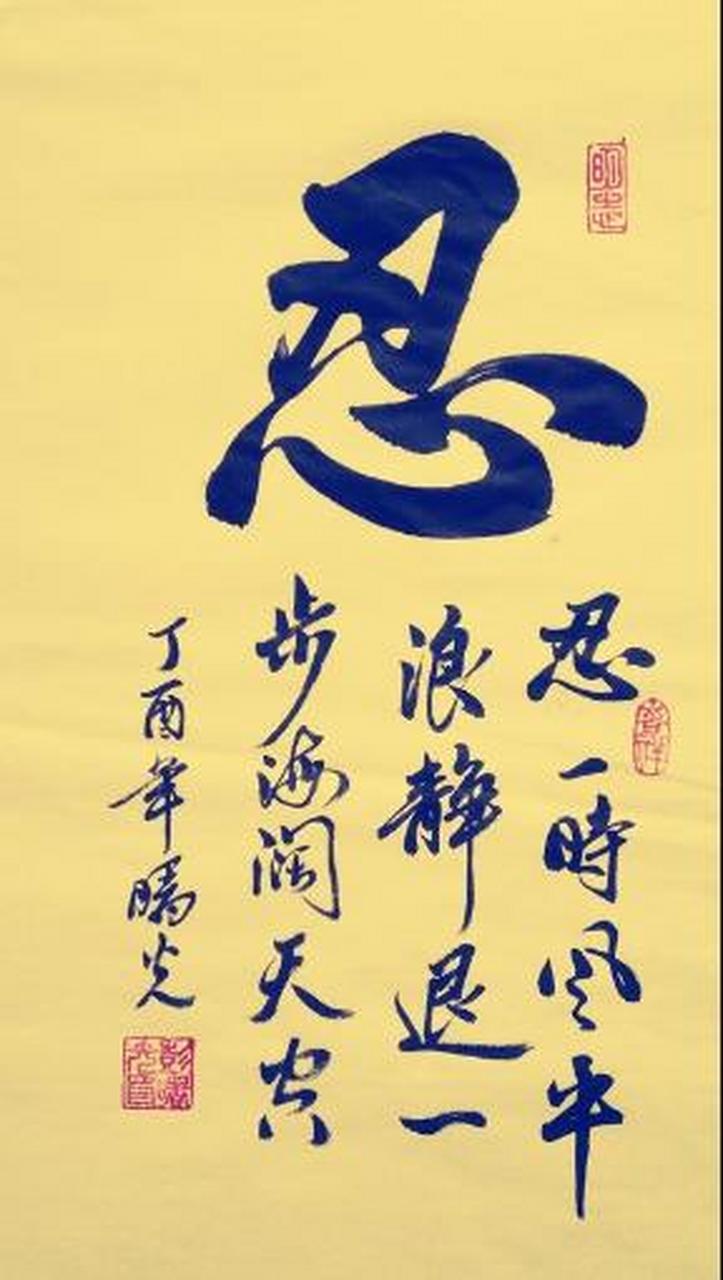 忍
忍一時風平
浪靜退一
步海闊天空
丁酉年曉光